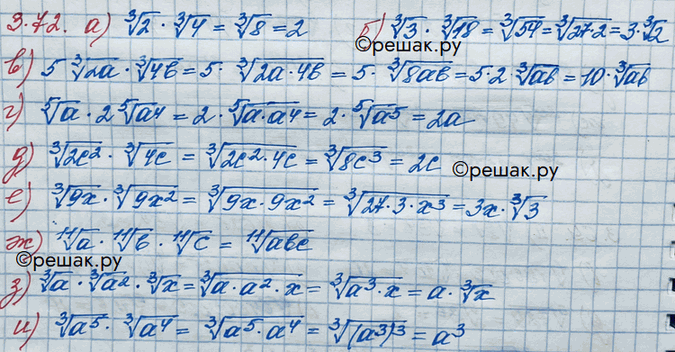 3.72. а) ∛2 · ∛4 = ∛8 = 2 б) ∛3 · ∛18 = ∛54 = ∛27·2 = 3·∛2
©решак.ру
в) 5 ∛2a · ∛4b = 5 · ∛2a·4b = 5 · ∛8ab = 5·2·∛ab = 10·∛ab
г) ⁵√a · 2 ⁵√a⁴ = 2 · ⁵√a·a⁴ = 2 · ⁵√a⁵ = 2a
д) ∛2c² · ∛4c = ∛2c²·4c = ∛8c³ = 2c ©решак.ру
е) ∛9x · ∛9x² = ∛9x·9x² = ∛27·3·x³ = 3x·∛3
ж) ¹¹√a · ¹¹√b · ¹¹√c = ¹¹√abc
©решак.ру
з) ∛a · ∛a² · ∛x = ∛a·a²·x = ∛a³·x = a·∛x
и) ∛a⁵ · ∛a⁴ = ∛a⁵·a⁴ = ∛(a³)³ = a³